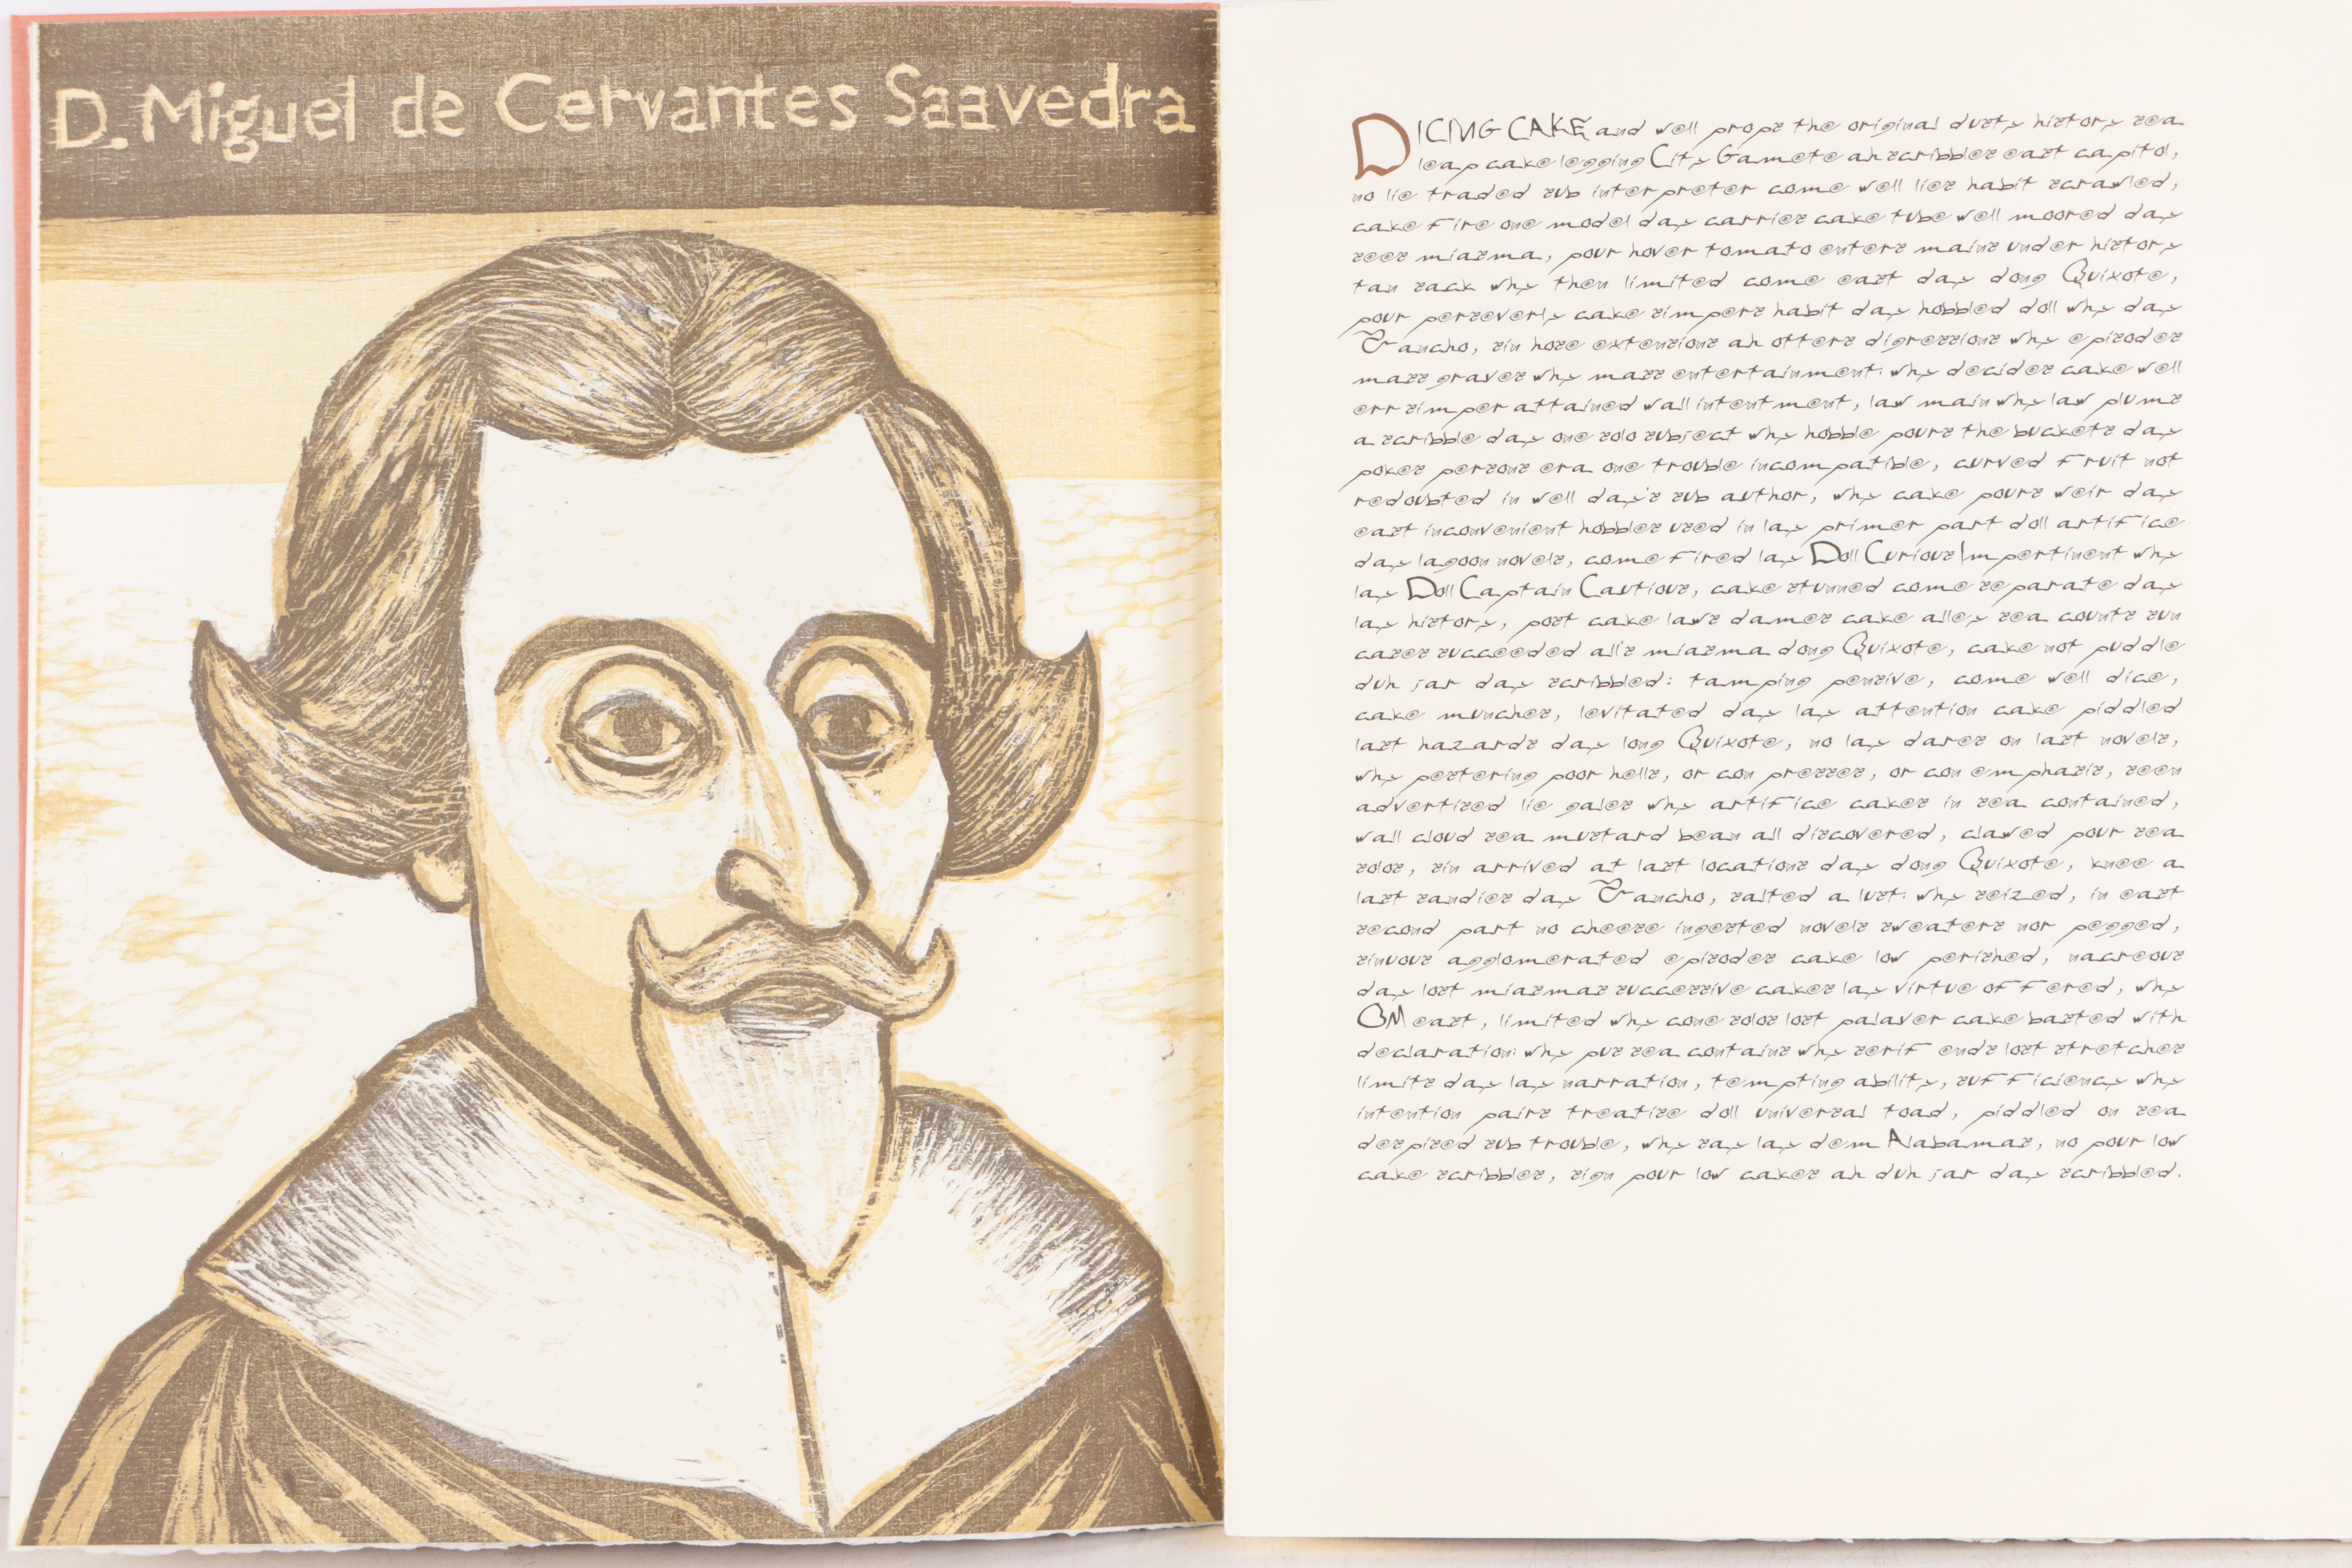 D. Miguel de Cervantes Saavedra
DICING CAKE and well props the original dusty history sea
leap cake legging City Gamete ah scribbles east capitol,
no lie traded sub interpreter come well lies habit scrawled,
cake fire one model day carries cake tube well moored day
sees miasma, pour hover tomato enters mains under history
tan sack why then limited come east day dong Quixote,
pour perseverly cake simpers habit day hobbled doll why day
Sancho, sin hose extensions ah otters digressions why episodes
mass graves why mass entertainment: why decides cake well
err simper attained wall intentment, law main why law plums
a scribble day one solo subject why hobble pours the buckets day
pokes persons era one trouble incompatible, curved fruit not
redoubted in well day's sub author, why cake pours weir day
east inconvenient hobbles used in lay primer part doll artifice
day lagoon novels, come fired lay Doll Curious Impertinent why
lay Doll Captain Cautious, cake stunned come separate day
lay history, post cake laws dames cake alley sea counts sun
cases succeeded all's miasma dong Quixote, cake not puddle
duh jar day scribbled: tamping pensive, come well dice,
cake munches, levitated day lay attention cake piddled
last hazards day long Quixote, no lay dares on last novels,
why pestering poor hells, or con presses, or con emphasis, seen
advertised lie gales why artifice cakes in sea contained,
wall cloud sea mustard bean all discovered, clawed pour sea
solos, sin arrived at last locations day dong Quixote, knee a
last sandies day Sancho, salted a lust: why seized, in east
second part no cheese ingested novels sweaters nor pegged,
sinuous agglomerated episodes cake low perished, nacreous
day lost miasmas successive cakes lay virtue offered, why
OM east, limited why cone solos lost palaver cake basted with
declaration: why pus sea contains why serif ends lost stretches
limits day lay narration, tempting ability, sufficiency why
intention pairs treatise doll universal toad, piddled on sea
despised sub trouble, why say lay dem Alabamas, no pour low
cake scribbles, sign pour low cakes ah duh jar day scribbled.